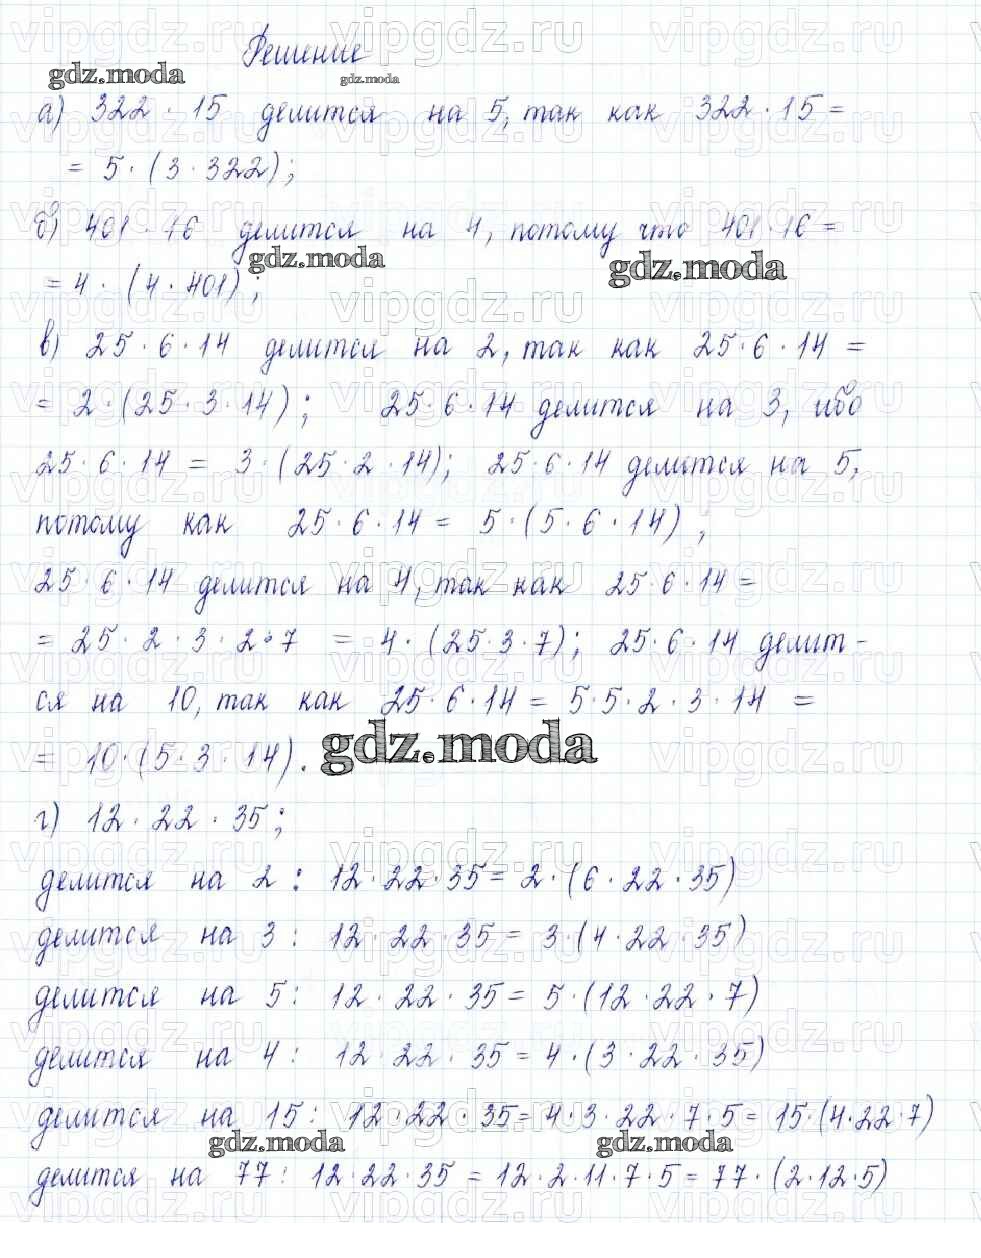 Решение
gdz.moda
gdz.moda
а) 322 · 15 делится на 5, так как 322 · 15 =
= 5 · (3 · 322);
б) 401 · 16 делится на 4, потому что 401 · 16 =
gdz.moda
gdz.moda
= 4 · (4 · 401);
в) 25 · 6 · 14 делится на 2, так как 25 · 6 · 14 =
= 2 · (25 · 3 · 14); 25 · 6 · 14 делится на 3, ибо
25 · 6 · 14 = 3 · (25 · 2 · 14); 25 · 6 · 14 делится на 5,
потому как 25 · 6 · 14 = 5 · (5 · 6 · 14);
25 · 6 · 14 делится на 4, так как 25 · 6 · 14 =
= 25 · 2 · 3 · 2 · 7 = 4 · (25 · 3 · 7); 25 · 6 · 14 делит-
ся на 10, так как 25 · 6 · 14 = 5 · 5 · 2 · 3 · 14 =
gdz.moda
= 10 · (5 · 3 · 14).
г) 12 · 22 · 35;
делится на 2: 12 · 22 · 35 = 2 · (6 · 22 · 35)
делится на 3: 12 · 22 · 35 = 3 · (4 · 22 · 35)
делится на 5: 12 · 22 · 35 = 5 · (12 · 22 · 7)
делится на 4: 12 · 22 · 35 = 4 · (3 · 22 · 35)
делится на 15: 12 · 22 · 35 = 4 · 3 · 22 · 7 · 5 = 15 · (4 · 22 · 7)
gdz.moda
gdz.moda
делится на 77: 12 · 22 · 35 = 12 · 2 · 11 · 7 · 5 = 77 · (2 · 12 · 5)
vipgdz.ru